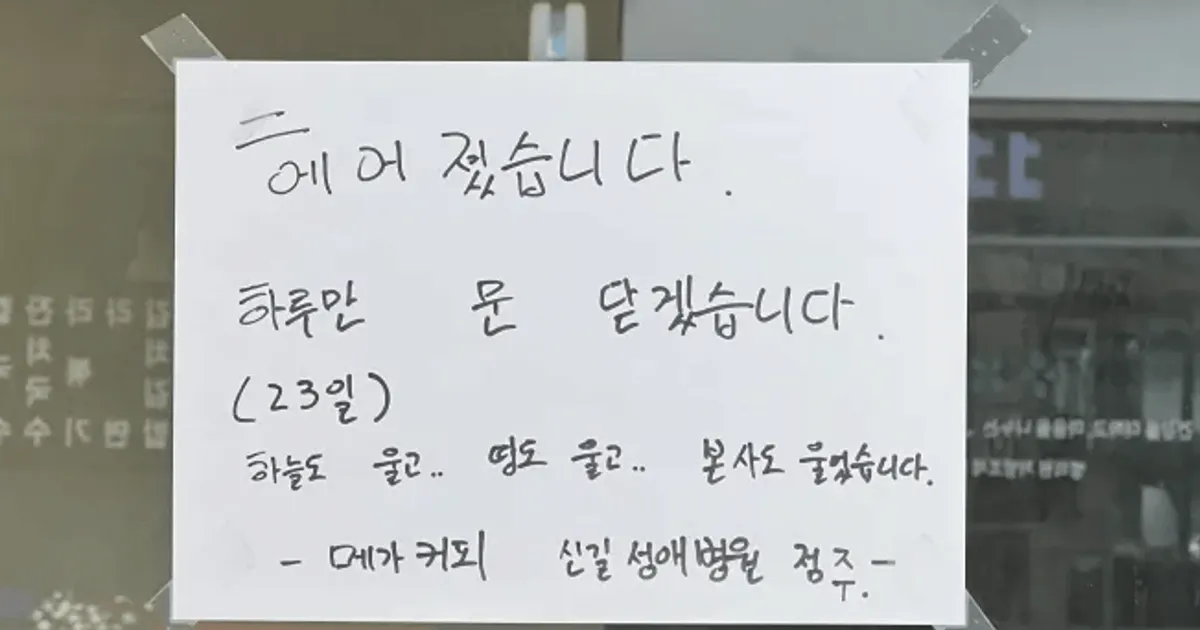 헤어졌습니다.
하루만 문 닫겠습니다.
(23일)
하늘도 울고.. 땅도 울고.. 본사도 울었습니다.
- 메가커피 신길성애병원 점주. -